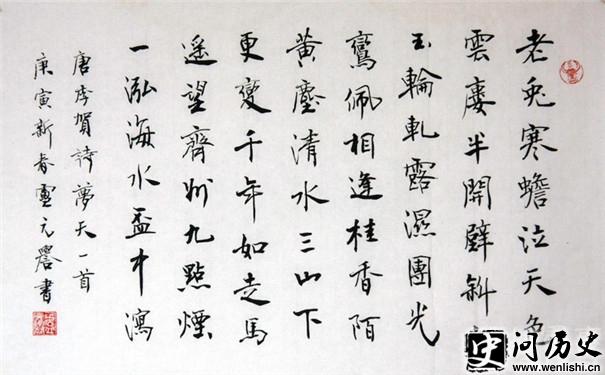 老兔寒蟾泣天色
雲廔半開壁斜
玉輪軋露濕團光
鸞佩相逢桂香陌
黃塵清水三山下
更變千年如走馬
遙望齊州九點煙
一泓海水盃中瀉
唐李賀詩夢天一首
庚寅新春元書
问历史
www.wenlishi.cn